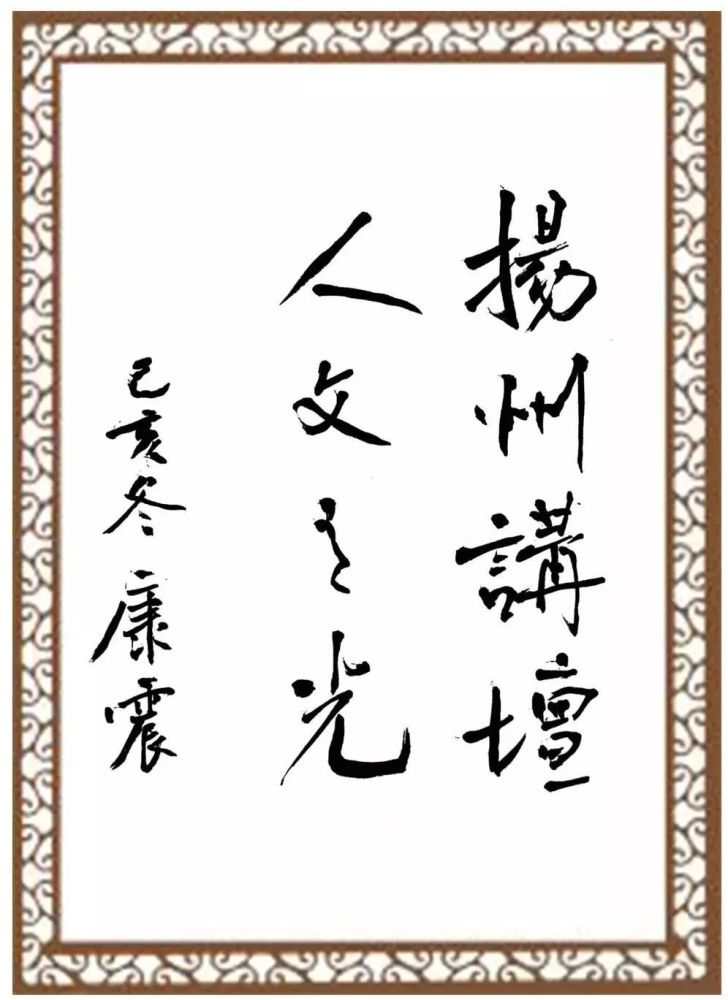 揚州講壇
人文之光
己亥冬 康震